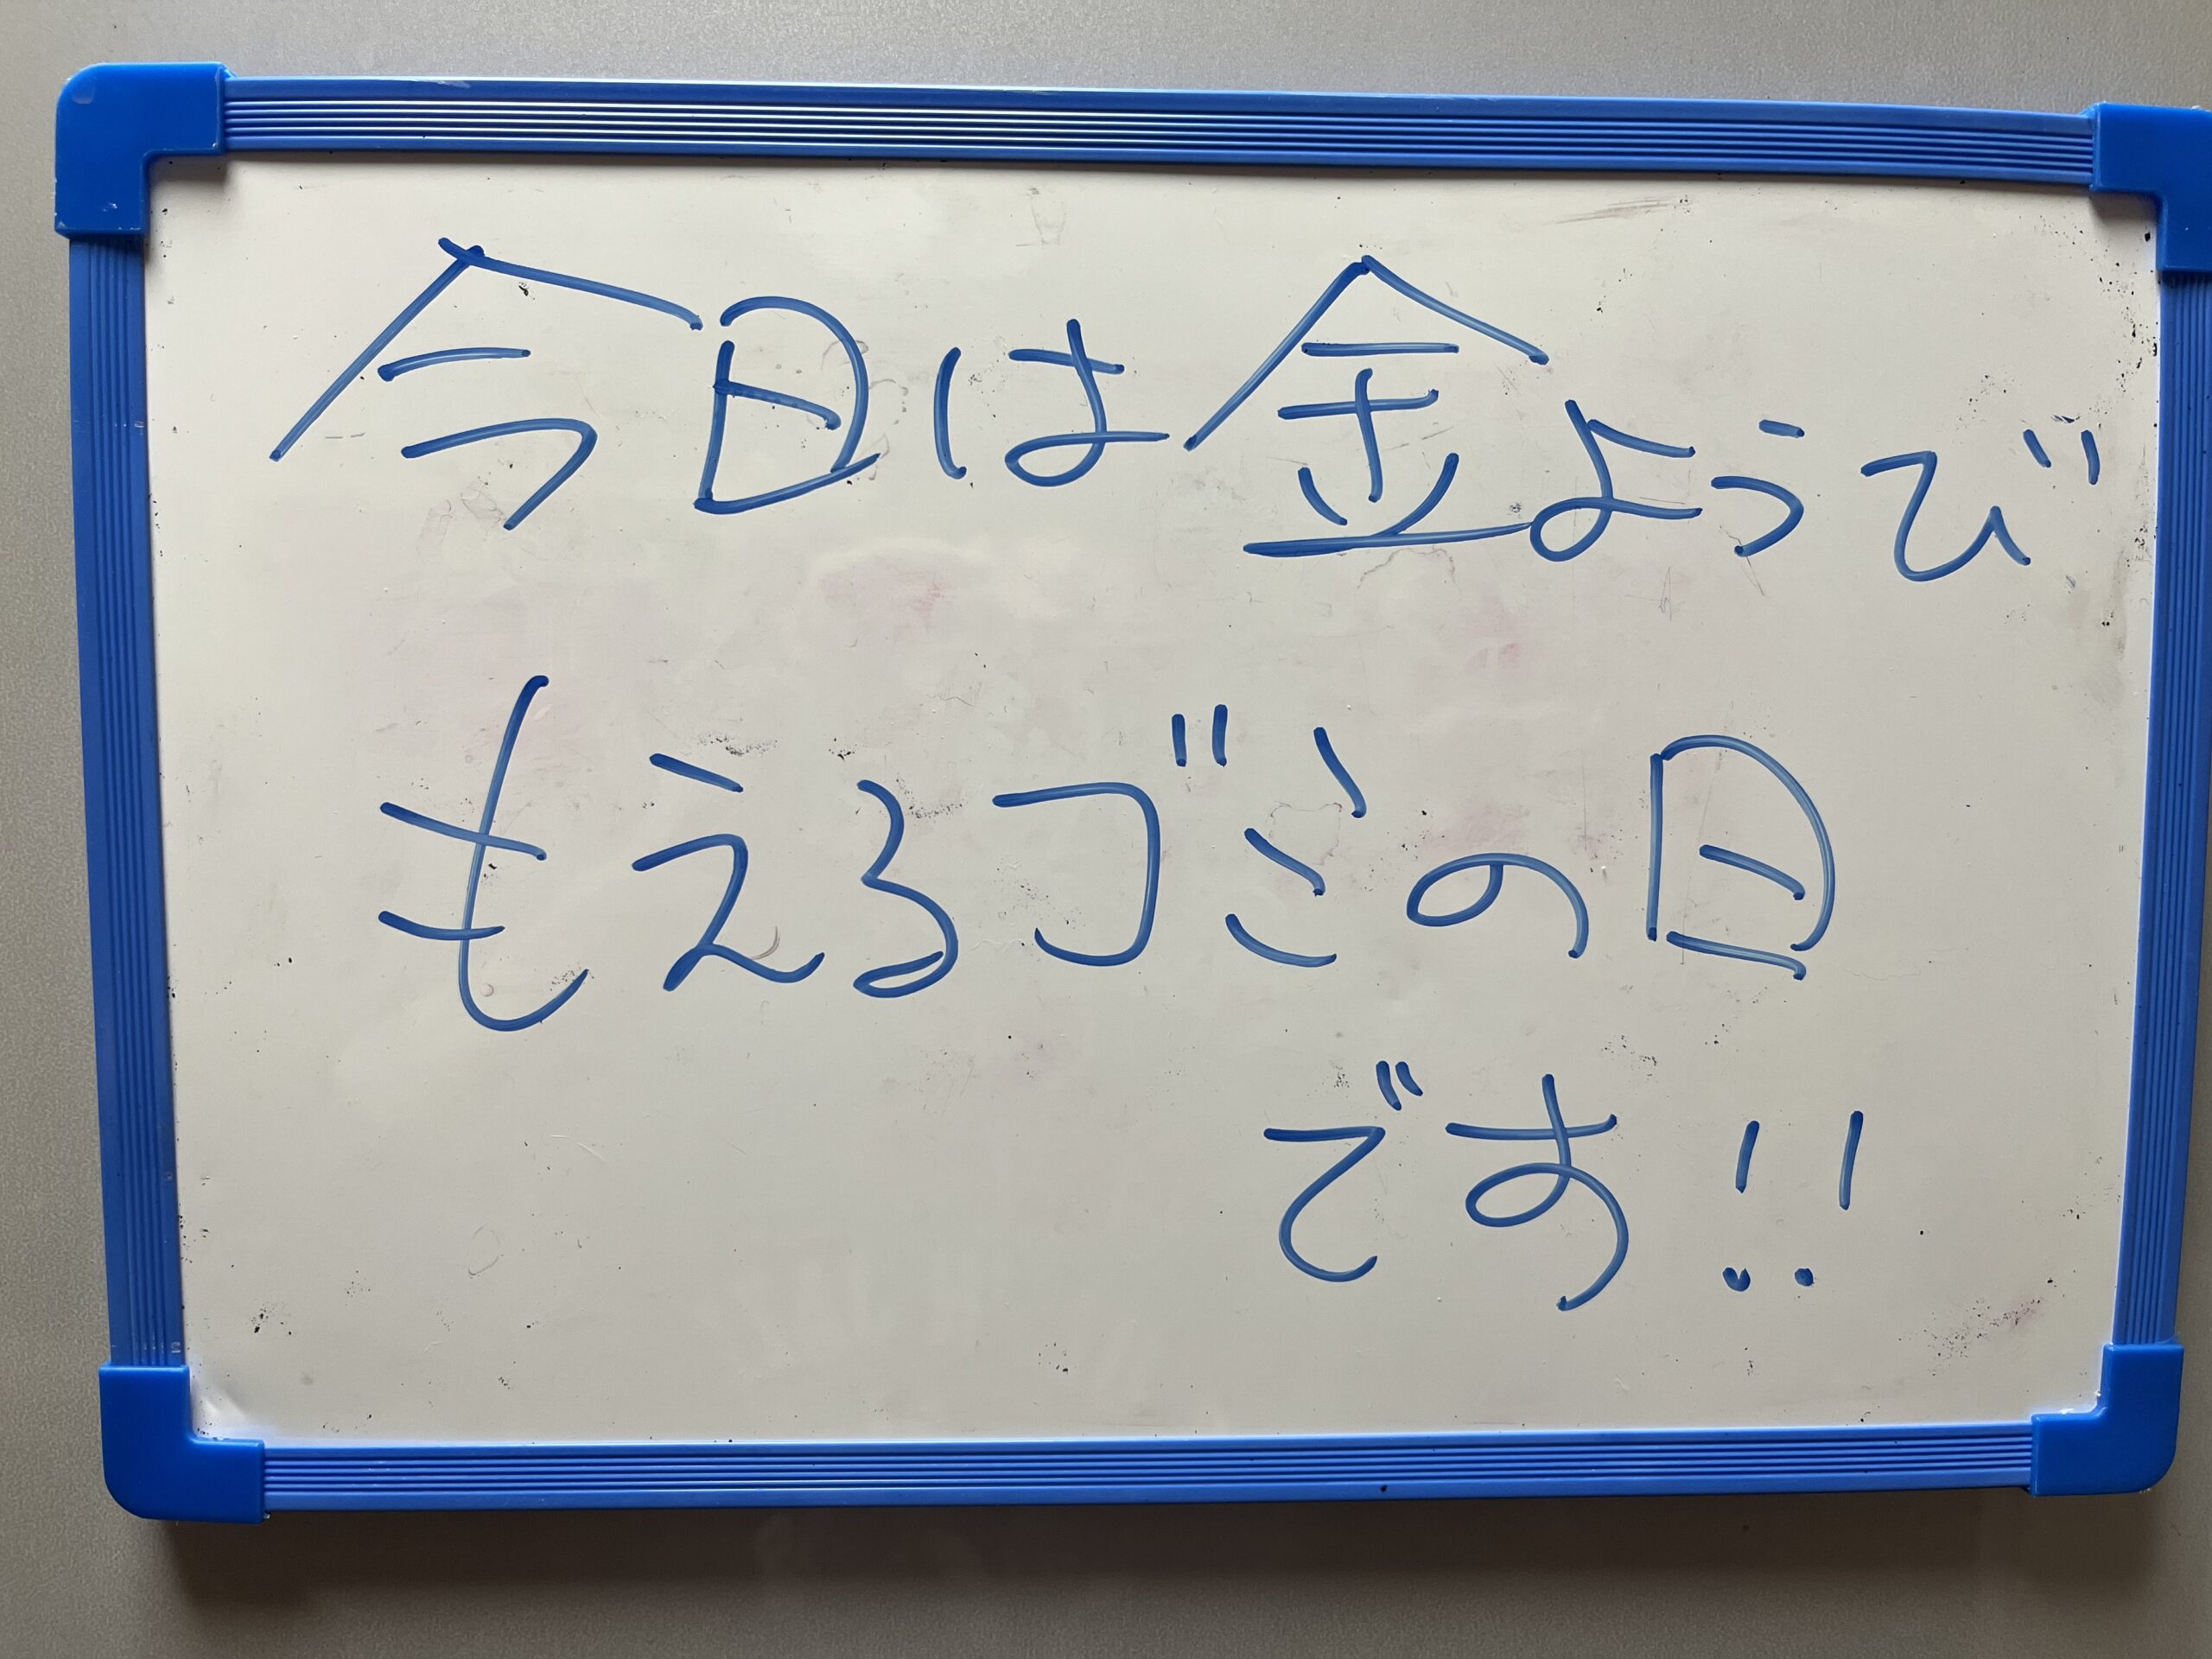 今日は金ようび
もえるゴミの日
です!!